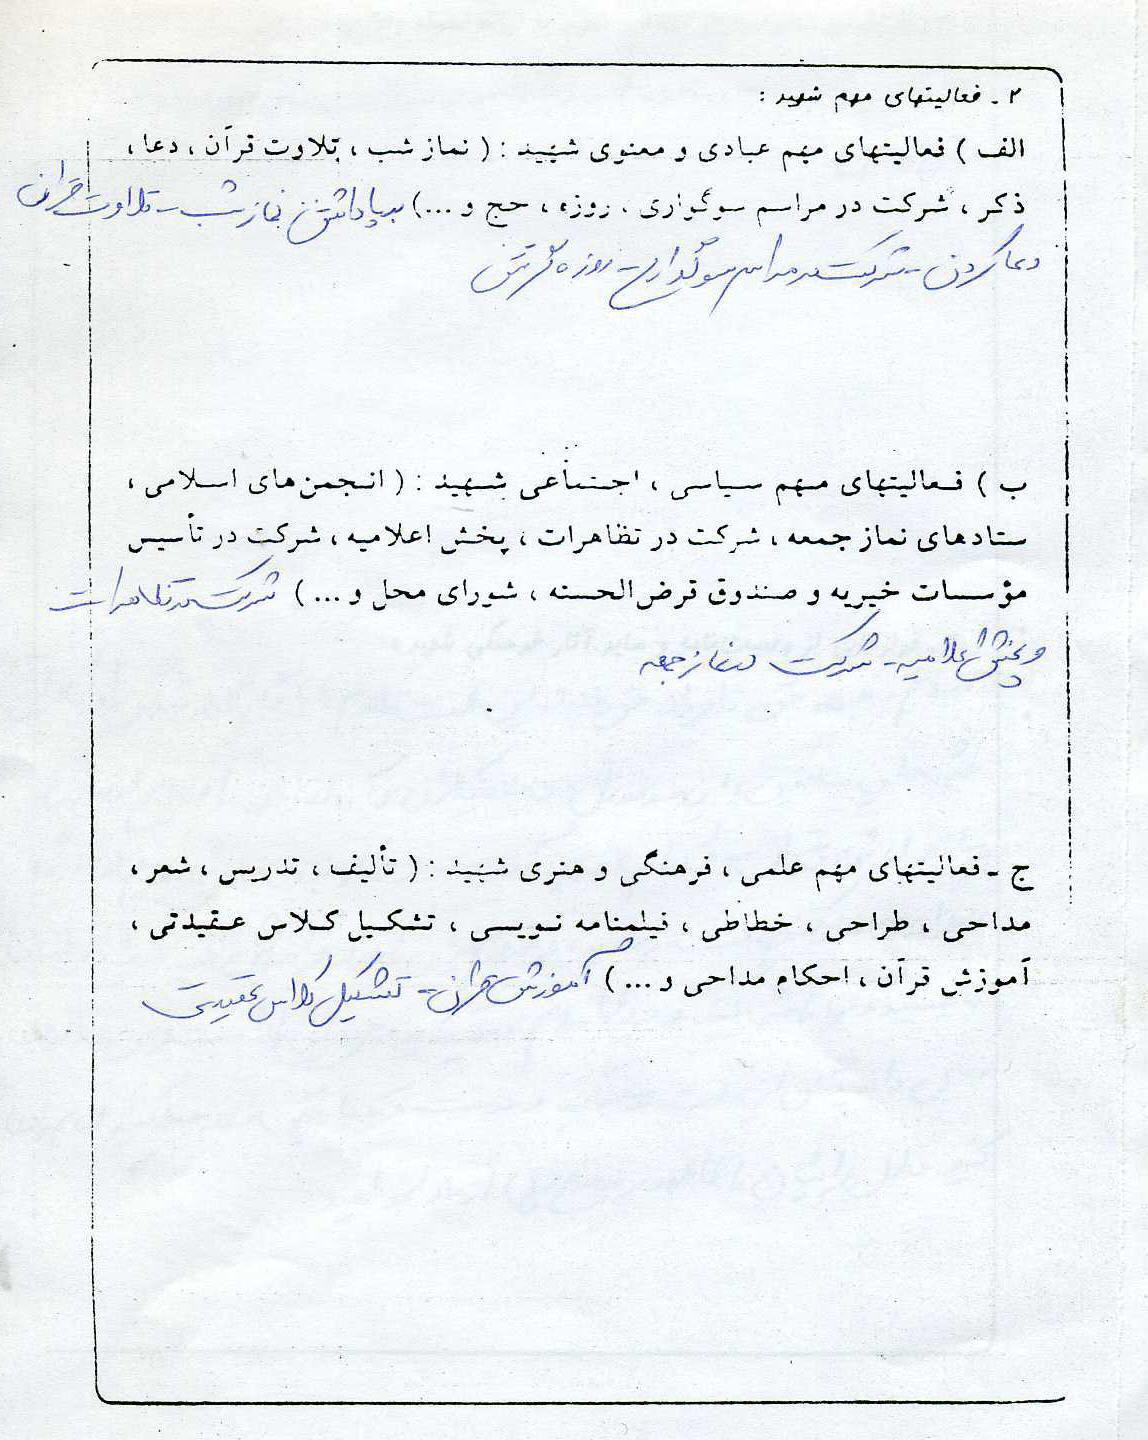 ۲ - فعالیتهای مهم شهید :
الف ) فعالیتهای مهم عبادی و معنوی شهید : ( نماز شب ، تلاوت قرآن ، دعا ،
ذکر ، شرکت در مراسم سوگواری ، روزه ، حج و ...) بپاداشتن نماز شب - تلاوت قرآن
دعا کردن - شرکت در مراسم سوگواری - روزه گرفتن
ب ) فعالیتهای مهم سیاسی ، اجتماعی شهید : ( انجمن‌های اسلامی ،
ستادهای نماز جمعه ، شرکت در تظاهرات ، پخش اعلامیه ، شرکت در تأسیس
مؤسسات خیریه و صندوق قرض‌الحسنه ، شورای محل و ... ) شرکت در تظاهرات
و پخش اعلامیه - شرکت در نماز جمعه
ج - فعالیتهای مهم علمی ، فرهنگی و هنری شهید : ( تألیف ، تدریس ، شعر ،
مداحی ، طراحی ، خطاطی ، فیلمنامه نویسی ، تشکیل کلاس عقیدتی ،
آموزش قرآن ، احکام مداحی و ... ) آموزش قرآن - تشکیل کلاس عقیدتی